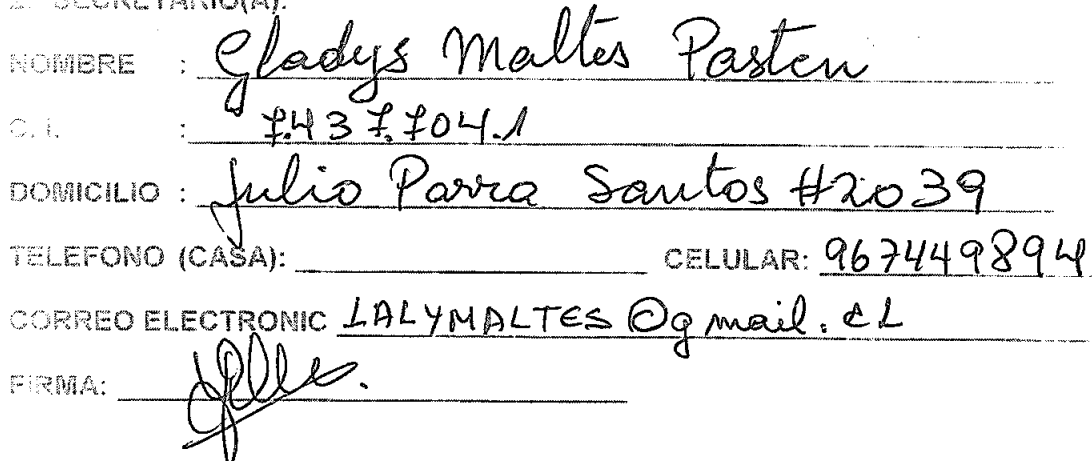 2. SECRETARIO(A):
NOMBRE : Gladys Maltes Pasten
C. I. : 7.437.704.1
DOMICILIO : Julio Parra Santos #2039
TELEFONO (CASA): CELULAR: 967449894
CORREO ELECTRONIC LALYMALTES @gmail.cl
FIRMA: